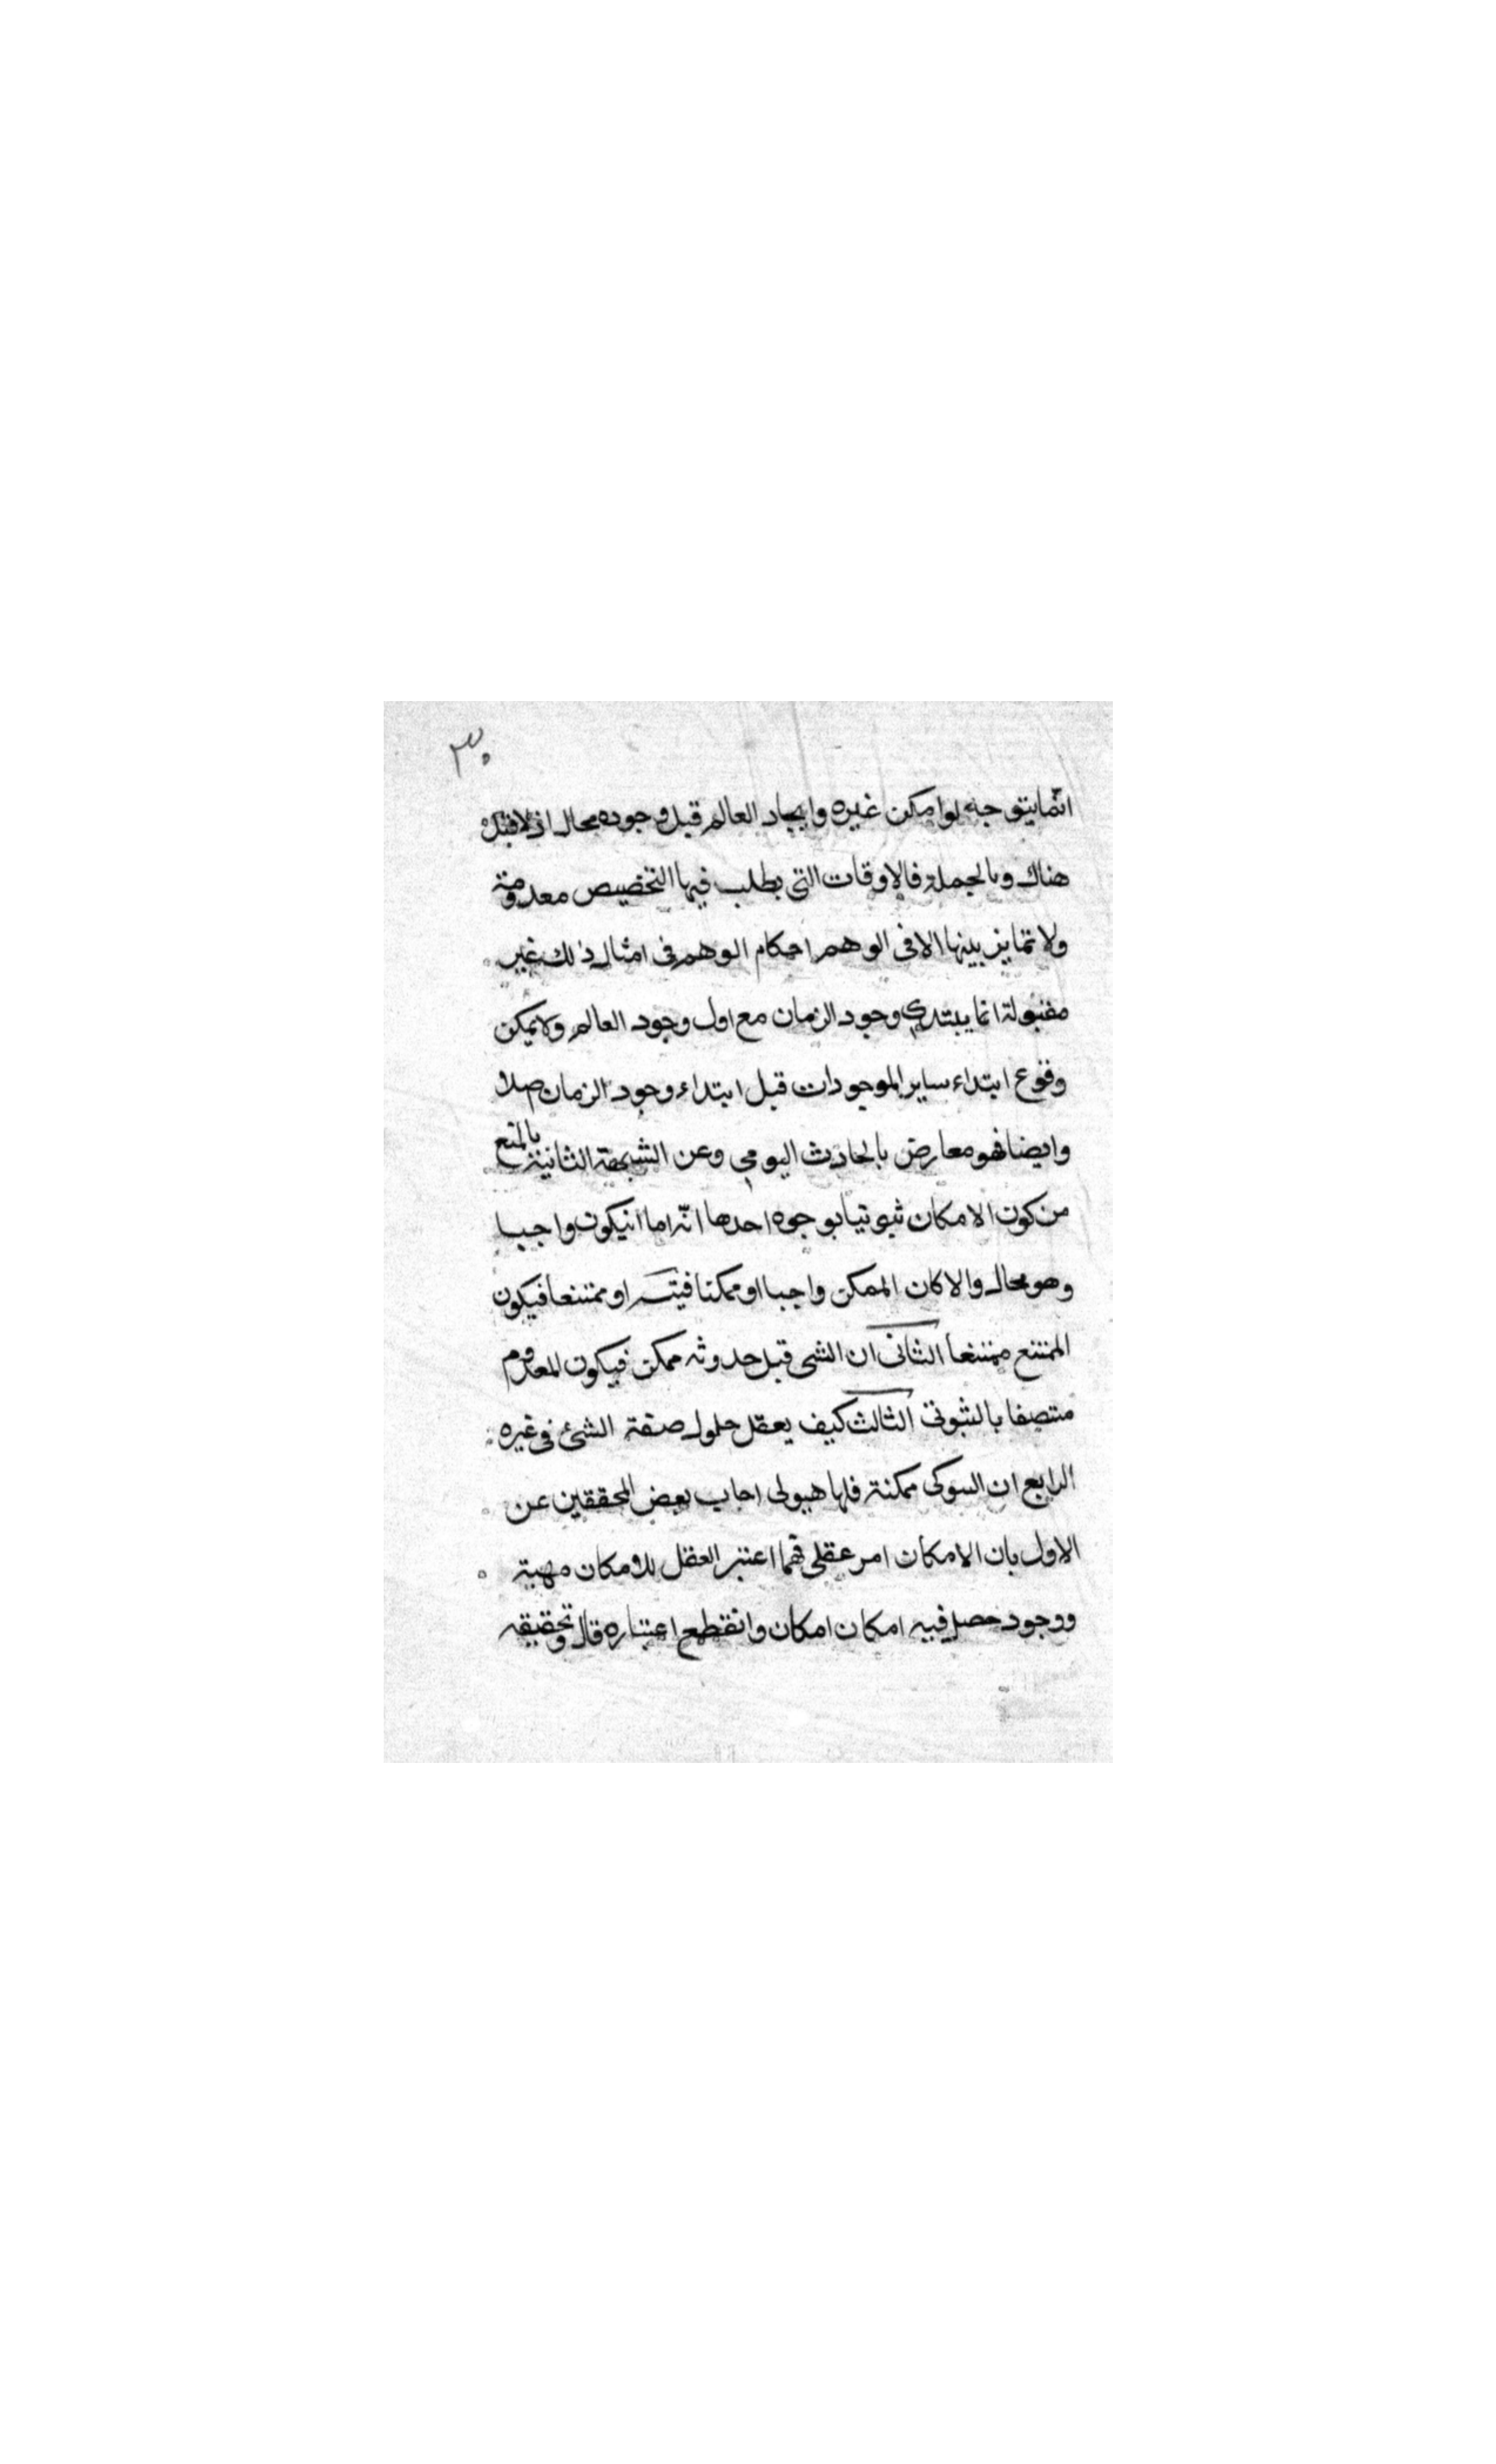 ٣٠
انّما يتوجه لو امكن غيره وايجاد العالم قبل وجوده محال اذ لا قبل
هناك وبالجملة فالاوقات التى يطلب فيها التخصيص معدومة
ولا تمايز بينها الا فى الوهم احكام الوهم فى امثال ذلك غير
مقبولة انما يبتدئ وجود الزمان مع اول وجود العالم ولا يمكن
وقوع ابتداء ساير الموجودات قبل ابتداء وجود الزمان اصلا
وايضا فهو معارض بالحادث اليومى وعن الشبهة الثانية بالمنع
من كون الامكان ثبوتيا بوجوه احدها انّه اما انيكون واجبا
وهو محال والا كان الممكن واجبا او ممكنا فيتسـ او ممتنعا فيكون
الممتنع ممتنعا الثانى ان الشى قبل حدوثه ممكن فيكون المعدوم
متصفا بالثبوتى الثالث كيف يعقل حلول صفة الشئ فى غيره
الرابع ان ممكنة فلها هيولى اجاب بعض المحققين عن
الاول بان الامكان امر عقلى فمهما اعتبر العقل للامكان مهية
ووجود حصل فيه امكان امكان وانقطع اعتباره قال وتحقيقه